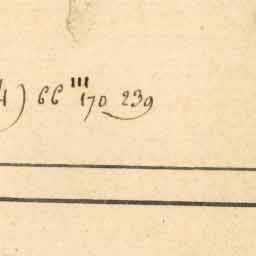 4) 66''' 170 239